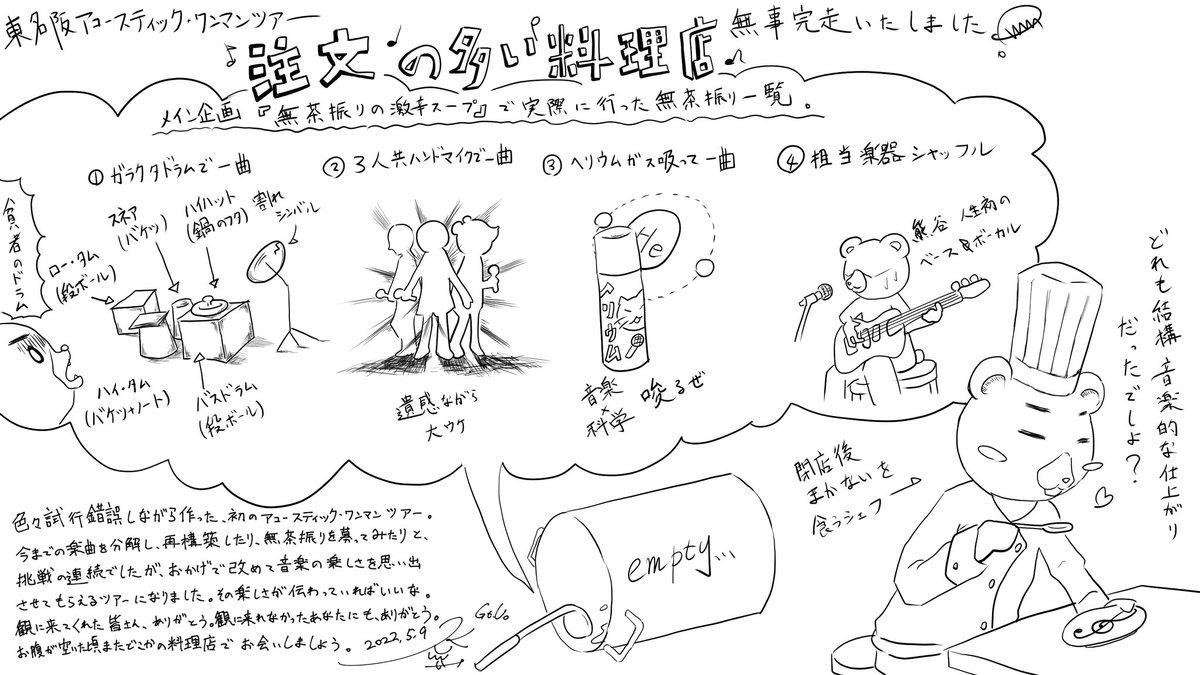 東名阪アコースティック・ワンマンツアー
注文の多い料理店
無事完走いたしました
メイン企画『無茶振りの激辛スープ』で実際に行った無茶振り一覧。
① ガラクタドラムで一曲
貧者のドラム
ロー・タム
(段ボール)
スネア
(バケツ)
ハイハット
(鍋のフタ)
割れ
シンバル
ハイ・タム
(バケツ+ノート)
バスドラム
(段ボール)
② 3人共ハンドマイクで一曲
遺憾ながら
大ウケ
③ ヘリウムガス吸って一曲
He
ヘリウム
音楽
×
科学
唆るぜ
④ 担当楽器シャッフル
熊谷 人生初の
ベース&ボーカル
どれも結構音楽的な仕上がり
だったでしょ?
閉店後
まかないを
食うシェフ
empty...
色々試行錯誤しながら作った、初のアコースティック・ワンマンツアー。
今までの楽曲を分解し、再構築したり、無茶振りを募ってみたりと、
挑戦の連続でしたが、おかげで改めて音楽の楽しさを思い出
させてもらえるツアーになりました。その楽しさが伝わっていればいいな。
観に来てくれた皆さん、ありがとう。観に来れなかったあなたにも、ありがとう。
お腹が空いた頃またどこかの料理店でお会いしましょう。2022.5.9